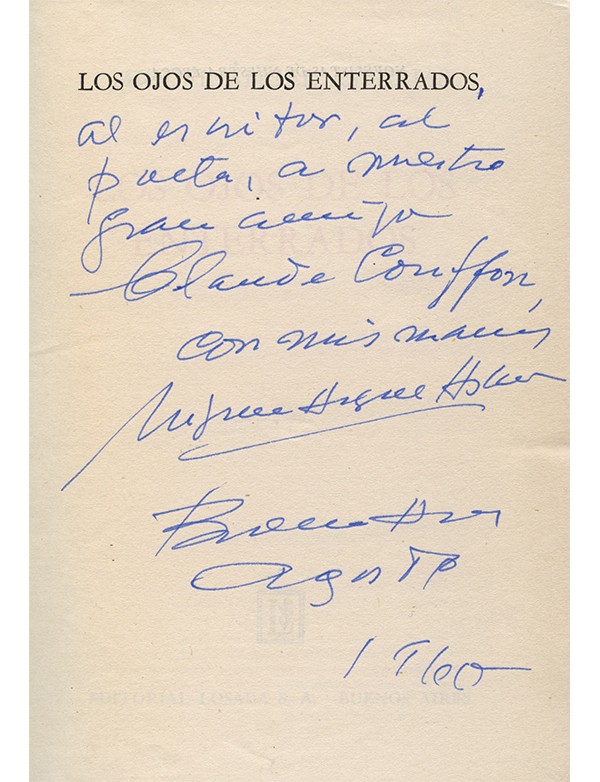 LOS OJOS DE LOS ENTERRADOS,
al escritor, al
poeta, a nuestro
gran amigo
Claude Couffon,
con mis manos
Miguel Angel Astur
Buenos Aires
Agosto
1960
LOS OJOS DE LOS
ENTERRADOS
EDITORIAL LOSADA S. A. BUENOS AIRES